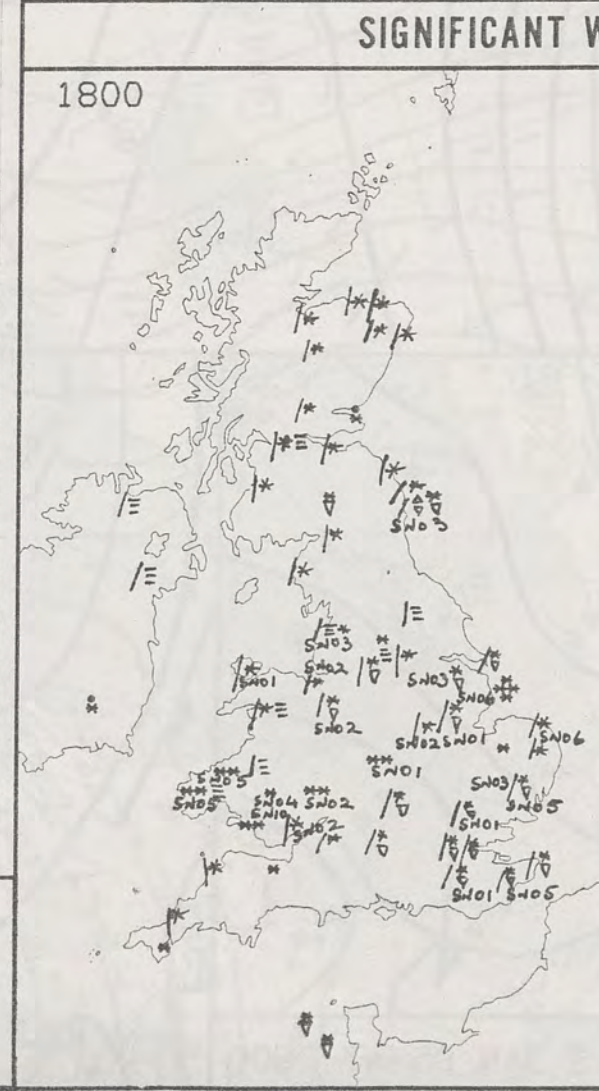 SIGNIFICANT W
1800
SN03
SN03
SN02
SN01
SN03
SN06
SN02
SN02
SN01
SN06
SN05
SN01
SN05
SN04
SN02
SN03
SN05
SN10
SN02
SN01
SN01
SN05